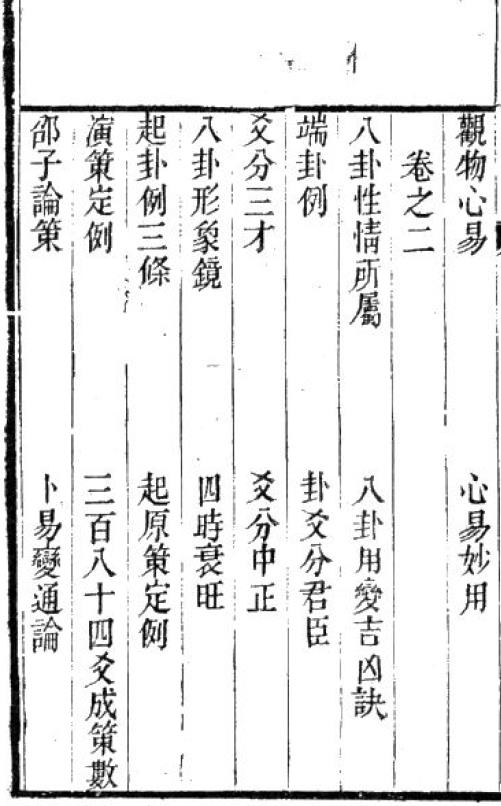 觀物心易　心易妙用
卷之二
八卦性情所屬　八卦用變吉凶訣
端卦例　卦爻分君臣
爻分三才　爻分中正
八卦形象鏡　四時衰旺
起卦例三條　起原策定例
演策定例　三百八十四爻成策數
邵子論策　卜易變通論